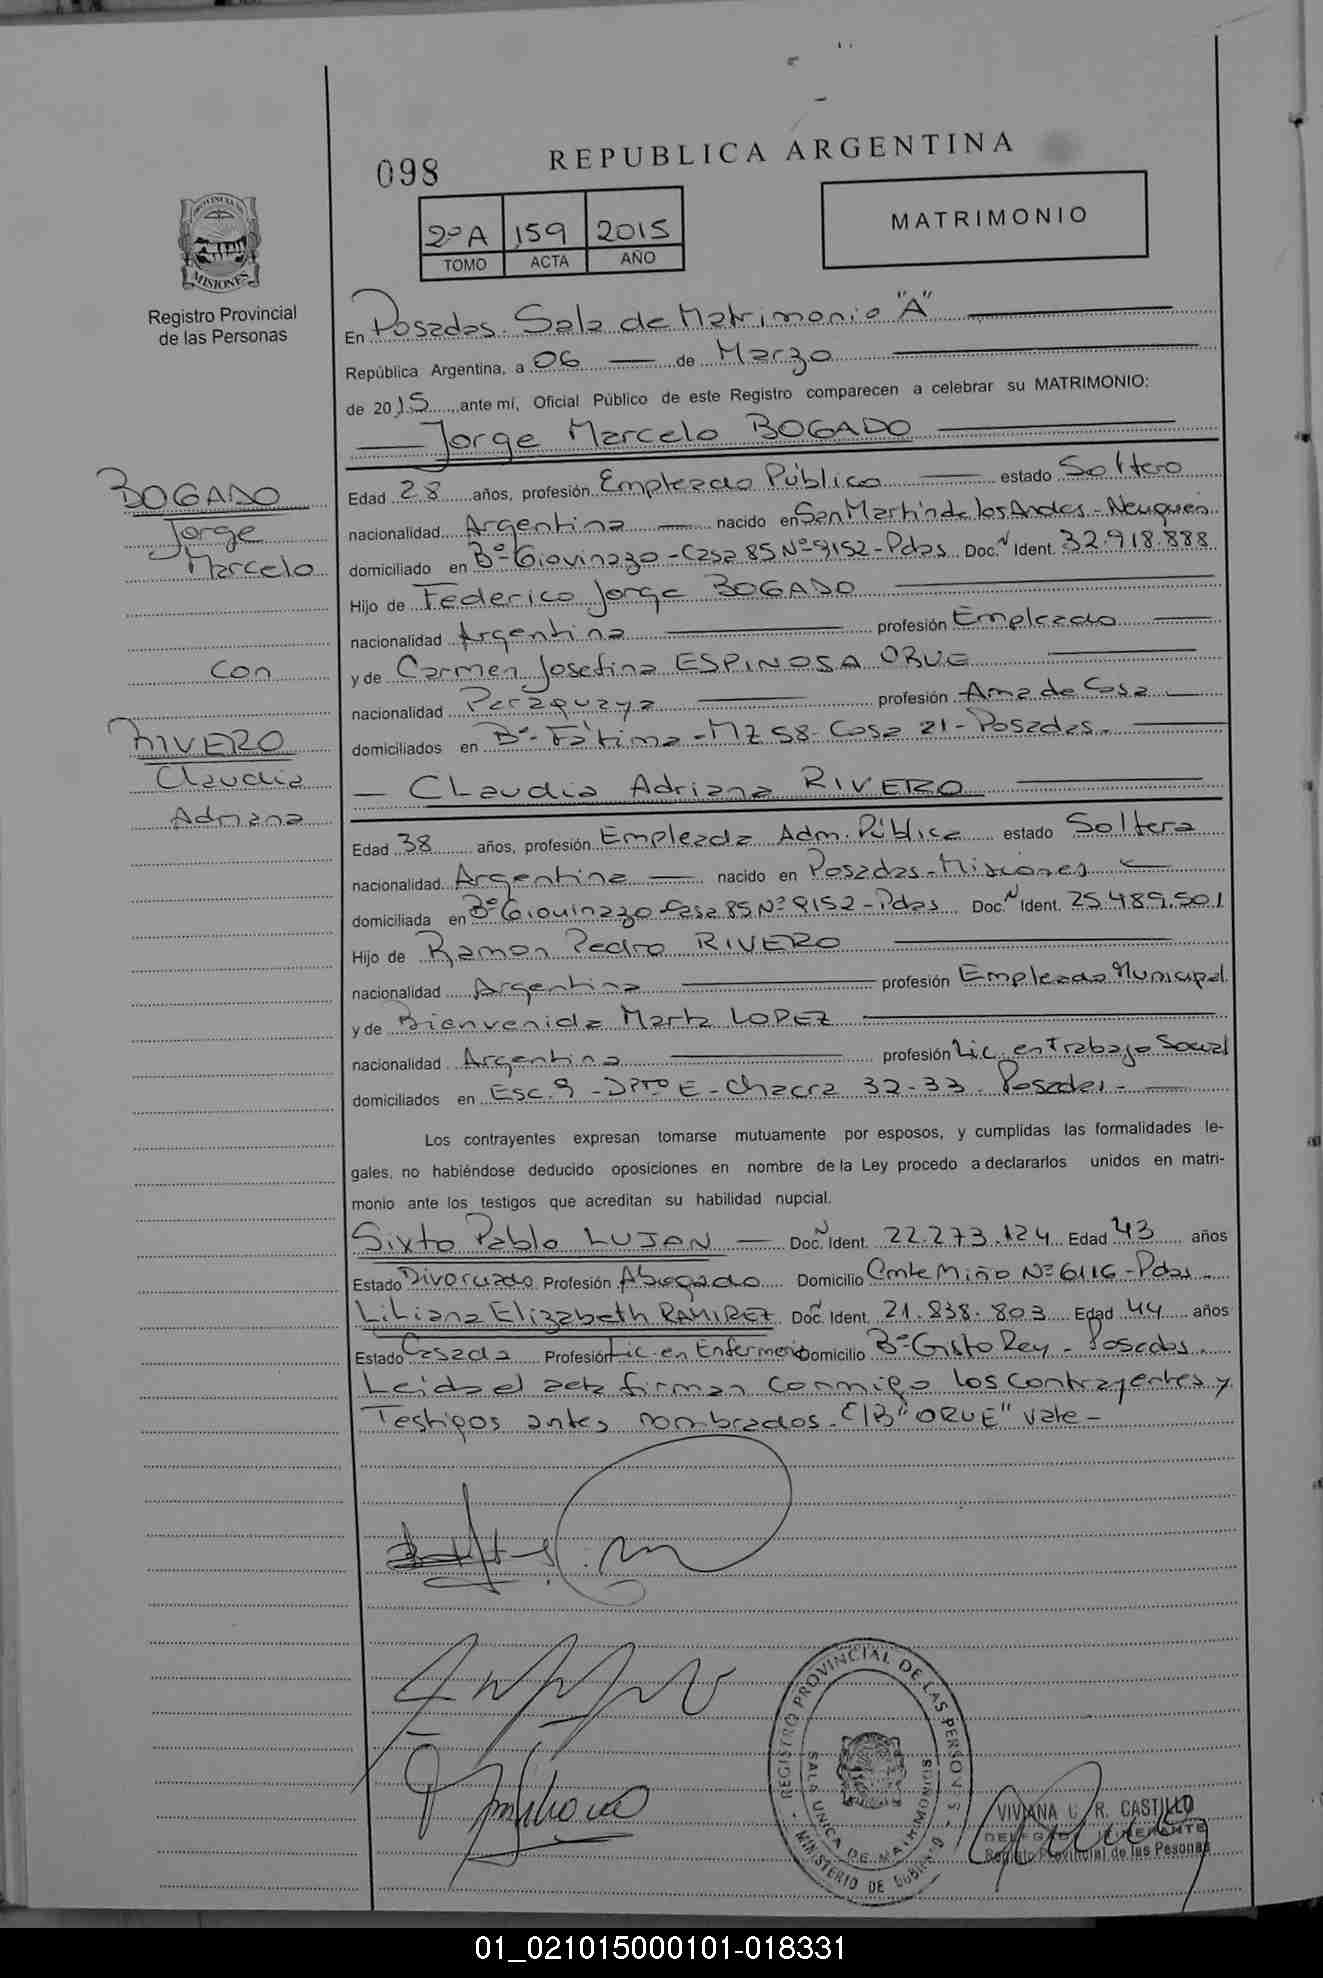 REPUBLICA ARGENTINA
098
MATRIMONIO
2º A 159 2015
TOMO ACTA AÑO
PROVINCIA DE
MISIONES
Registro Provincial
de las Personas
En Posadas. Sala de Matrimonio "A"
República Argentina, a 06 — de Marzo
de 2015 ante mí, Oficial Público de este Registro comparecen a celebrar su MATRIMONIO:
Jorge Marcelo BOGADO
BOGADO
Jorge
Marcelo
con
RIVERO
Claudia
Adriana
Edad 28 años, profesión Empleado Público — estado Soltero
nacionalidad Argentina — nacido en San Martin de los Andes - Neuquen
domiciliado en Bº Giovinazo - Casa 85 Nº 9152 - Pdas Doc. N Ident. 32.918.888
Hijo de Federico Jorge BOGADO
nacionalidad Argentina — profesión Empleado —
y de Carmen Josefina ESPINOSA ORUE —
nacionalidad Paraguaya — profesión Ama de Casa —
domiciliados en Bº - Fátima - MZ 58 - Casa 21 - Posadas -
— Claudia Adriana RIVERO —
Edad 38 años, profesión Empleada Adm. Pública estado Soltera
nacionalidad Argentina — nacido en Posadas - Misiones —
domiciliada en Bº Giovinazo - Casa 85 Nº 9152 - Pdas Doc. N Ident. 25.489.501
Hijo de Ramon Pedro RIVERO —
nacionalidad Argentina — profesión Empleado Municipal
y de Bienvenida Marta LOPEZ —
nacionalidad Argentina — profesión Lic. en Trabajo Social
domiciliados en Esc. 9 - DPTO E - Chacra 32-33 - Posadas - —
Los contrayentes expresan tomarse mutuamente por esposos, y cumplidas las formalidades le-
gales, no habiéndose deducido oposiciones en nombre de la Ley procedo a declararlos unidos en matri-
monio ante los testigos que acreditan su habilidad nupcial.
Sixto Pablo LUJAN — Doc. N Ident. 22.273.124 Edad 43 años
Estado Divorciado Profesión Abogado Domicilio Cmte Miño Nº 6116 - Pdas -
Liliana Elizabeth RAMIREZ Doc. N Ident. 21.838.803 Edad 44 años
Estado Casada Profesión Lic. en Enfermeria Domicilio Bº Cristo Rey - Posadas.
Leida el acta firman conmigo los contrayentes y
Testigos antes nombrados. E/B "ORUE" Vale -
REGISTRO PROVINCIAL DE LAS PERSONAS
SALA UNICA DE MATRIMONIOS
MINISTERIO DE GOBIERNO
VIVIANA R. CASTILLO
Registro Provincial de las Pesonas
01_021015000101-018331